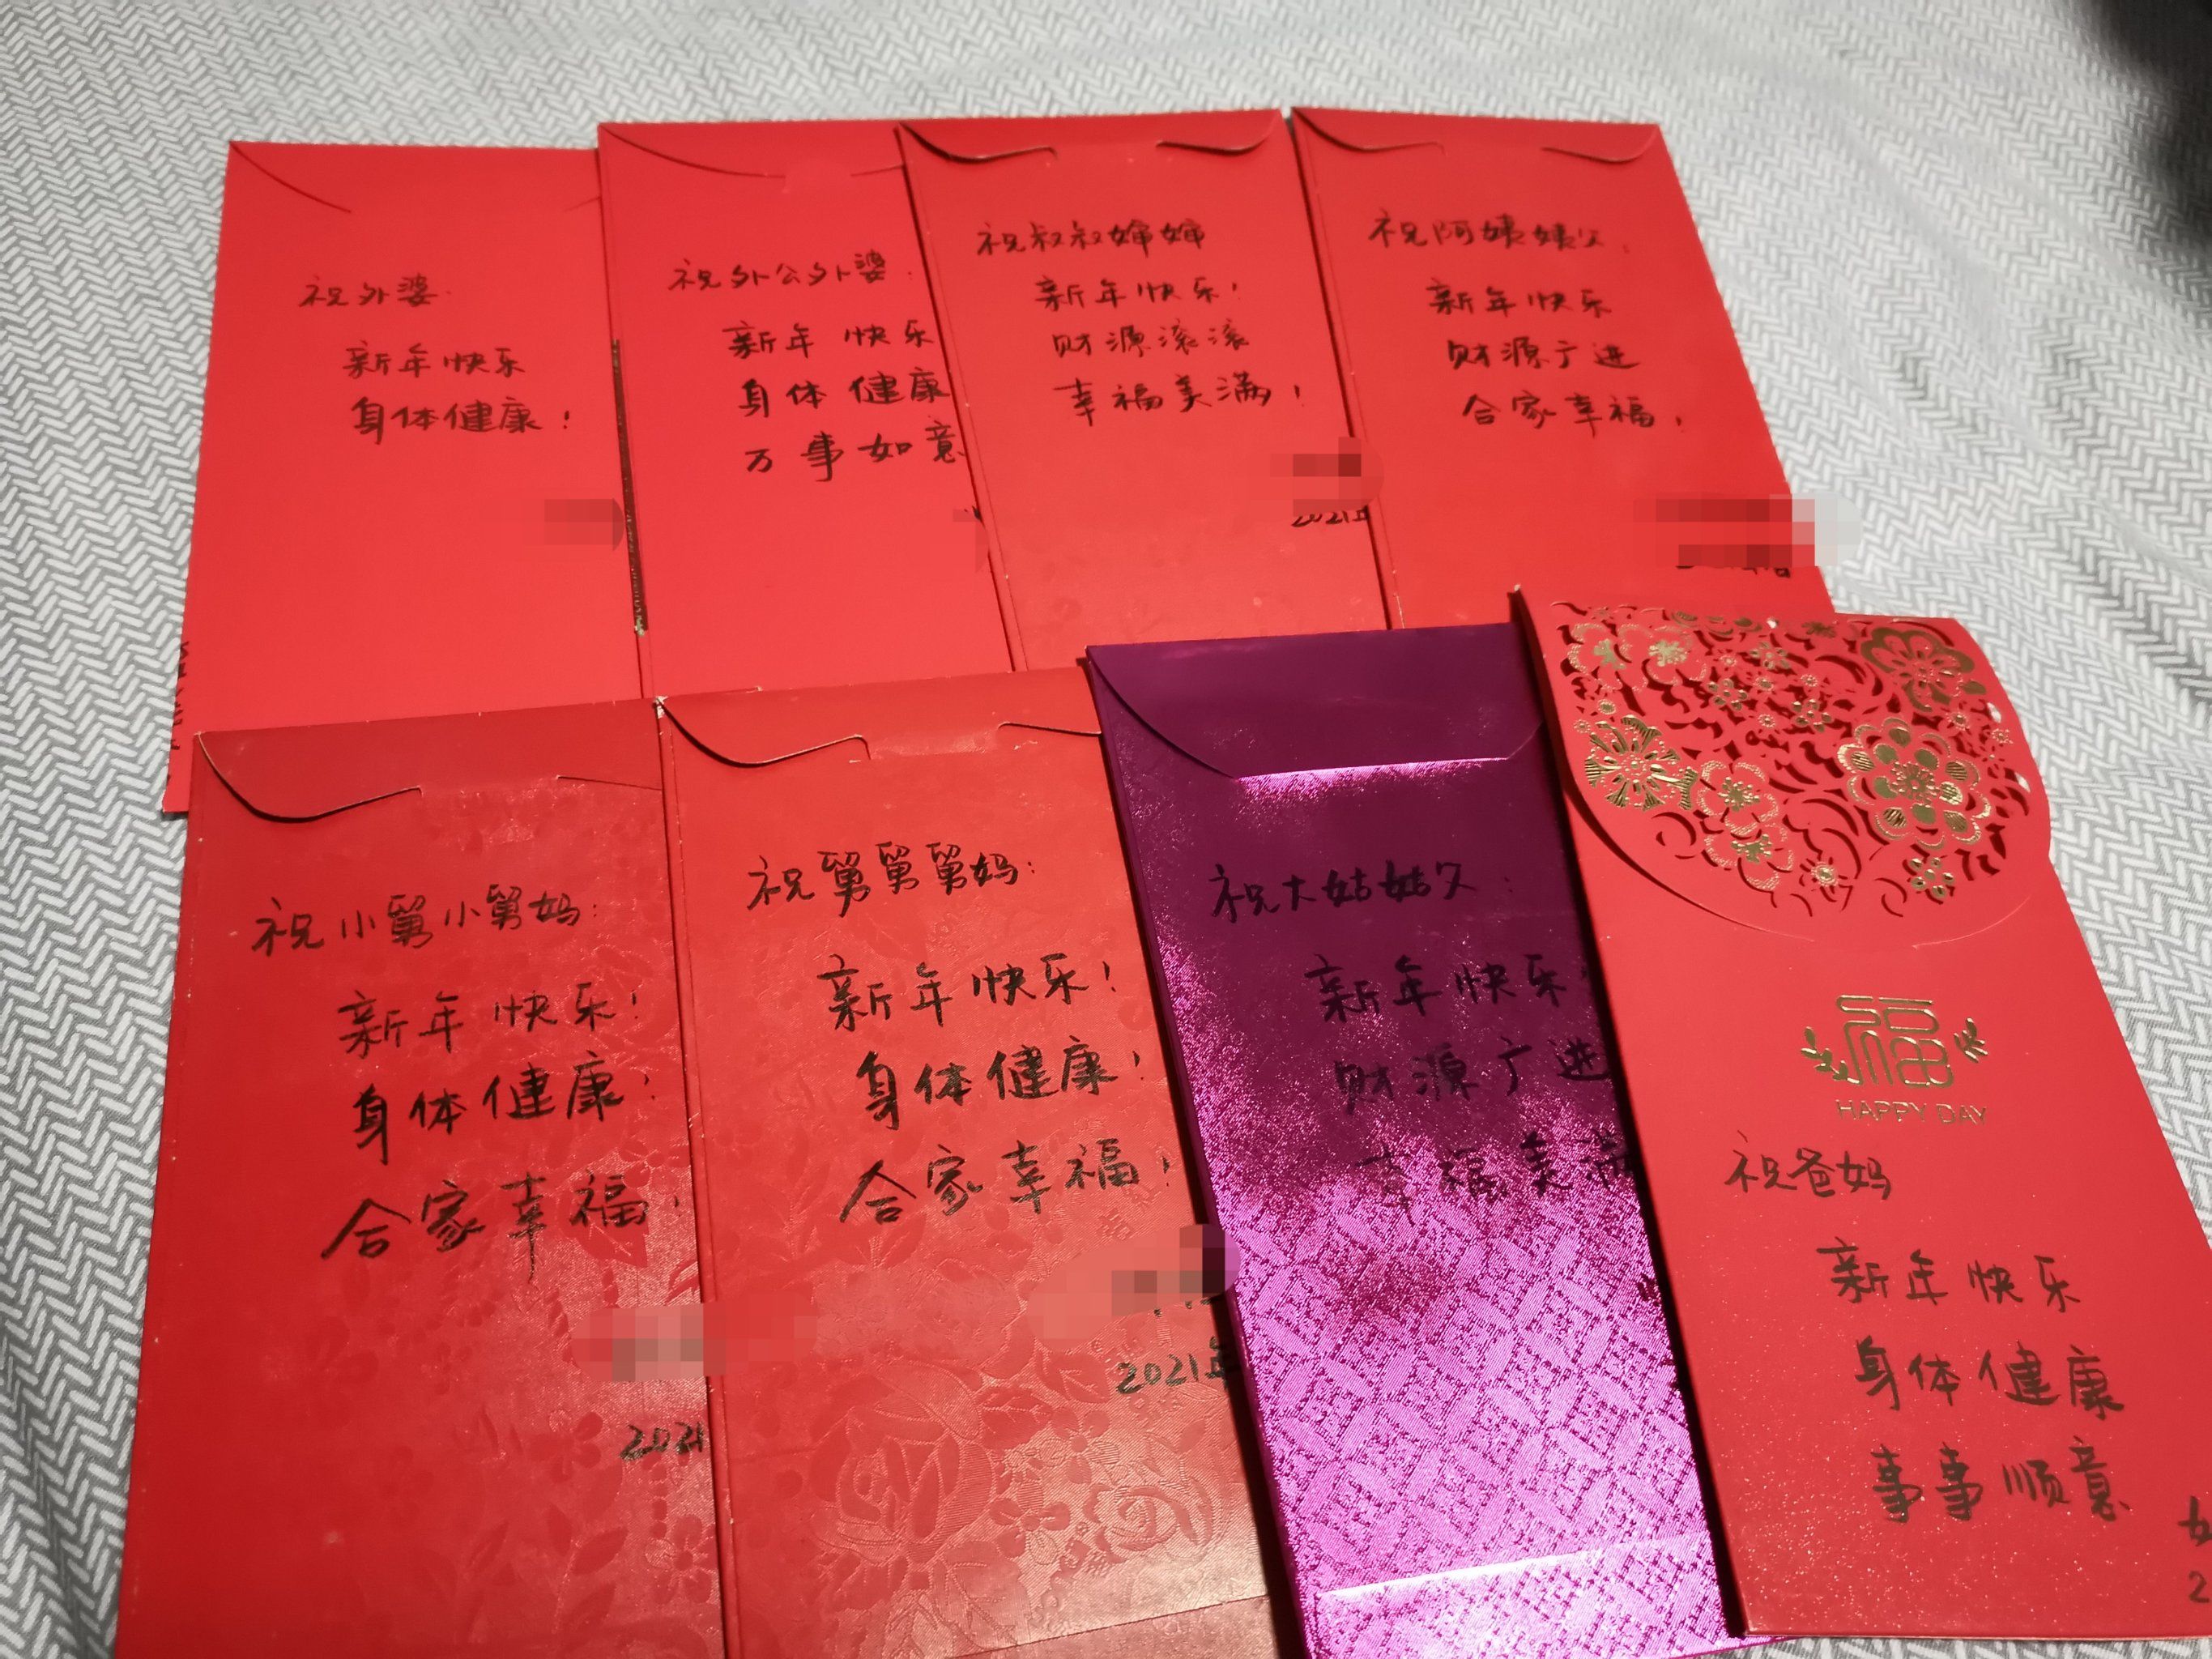 祝外婆
新年快乐
身体健康！
祝外公外婆：
新年快乐
身体健康
万事如意
祝叔叔婶婶
新年快乐！
财源滚滚
幸福美满！
2021年
祝阿姨姨父：
新年快乐
财源广进
合家幸福！
祝小舅小舅妈：
新年快乐！
身体健康！
合家幸福！
2021
祝舅舅舅妈：
新年快乐！
身体健康！
合家幸福！
2021年
祝大姑姑父：
新年快乐！
财源广进
幸福美满
福
HAPPY DAY
祝爸妈
新年快乐
身体健康
事事顺意
女
2